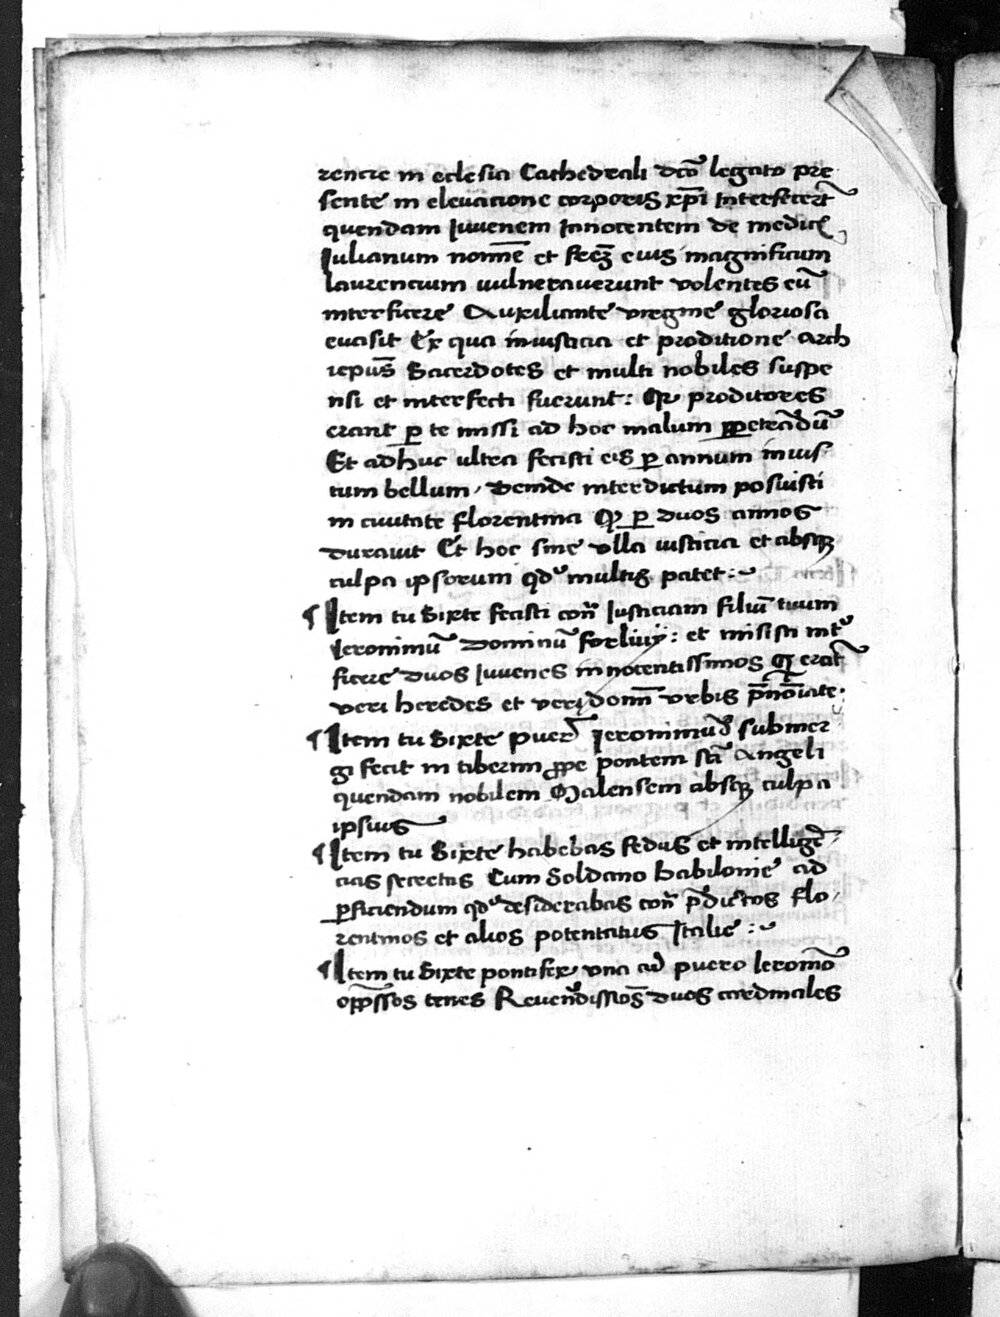 rencie in eclesia Cathedrali dcō legato pre
sente in eleuacione corporis xp̄i Interfecert̄
quendam Iuuenem Innocentem de medicȩ
Iulianum nomīe et frēȝ eius magnificum
laurencium uulnerauerunt volentes eū
interficere Auxiliante virgine gloriosa
euasit Ex qua iniusticia et proditione Arch
iepūs Sacerdotes et multi nobiles suspe
nsi et interfecti fuerunt: Qꝛ proditores
erant ꝑ te missi ad hoc malum ꝑpetrādū
Et adhuc ultra fecisti eis ꝑ annum inius
tum bellum, deinde interdictum posuisti
in ciuitate florentina Qȝ ꝑ duos annos
durauit Et hoc sine vlla iusticia et absqȝ
culpa ipsorum qdͧ multis patet:~
¶ Item tu Sixte fecisti con̄ Iusticiam filiū tuum
Ieronimū Dominū forliuij: et misisti intͬ
ficere duos Iuuenes innocentissimos q̄ erāt
veri heredes et veri dom̄ vrbis p̄noīate:
¶ Item tu Sixte puer̄ Ieronimūd submer
gi fecit in tiberim ꝓpe pontem sc̄ti Angeli
quendam nobilem Malensem absqȝ culpa
ipsius
¶ Item tu Sixte habebas fedus et intelligē
cias secretas Cum Soldano babilonie ad
ꝑficiendum qdͧ desiderabas con̄ p̄dictos flo,
rentinos et alios potentatus Italie:~
¶ Item tu Sixte pontifex vna cū puero Ieronīo
opp̄ssos tenes Reuen̄dissīos duos cardinales